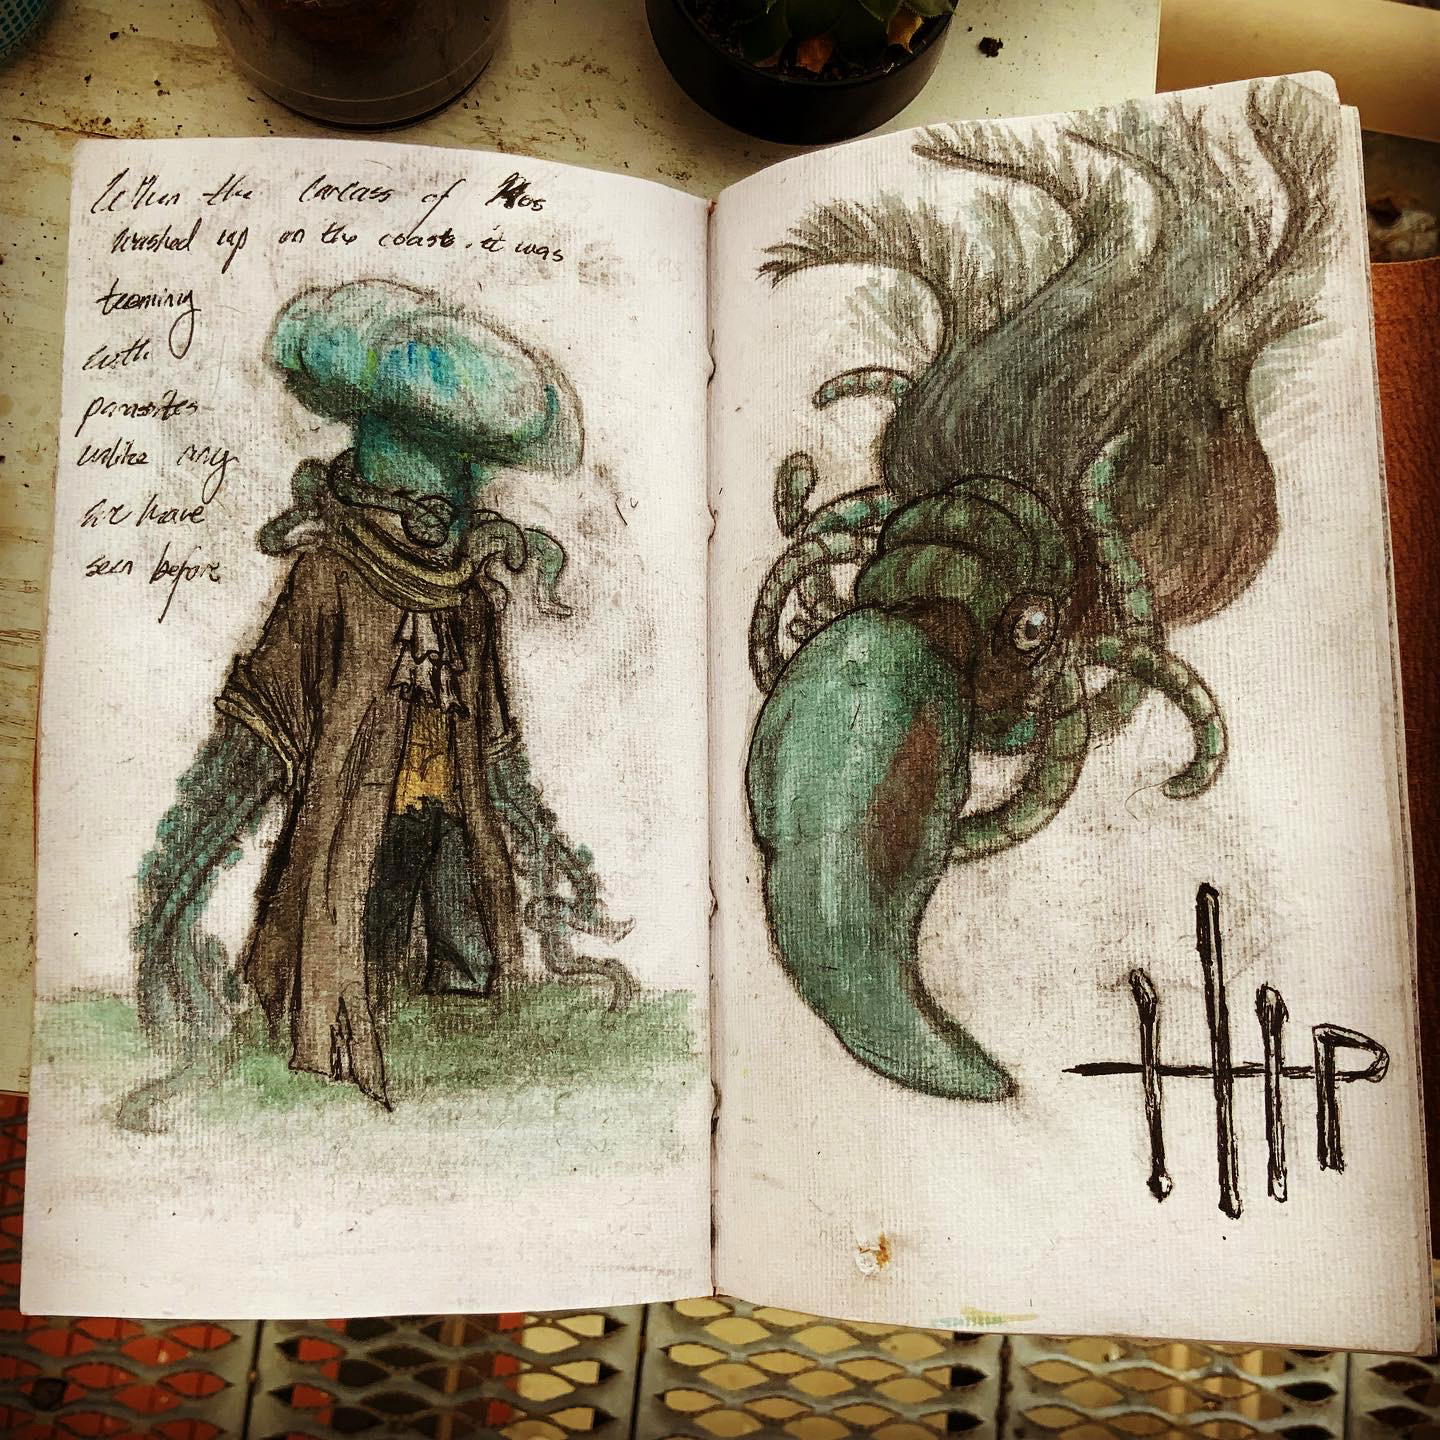 When the carcass of Kos
washed up on the coast, it was
teeming
with
parasites
unlike any
we have
seen before